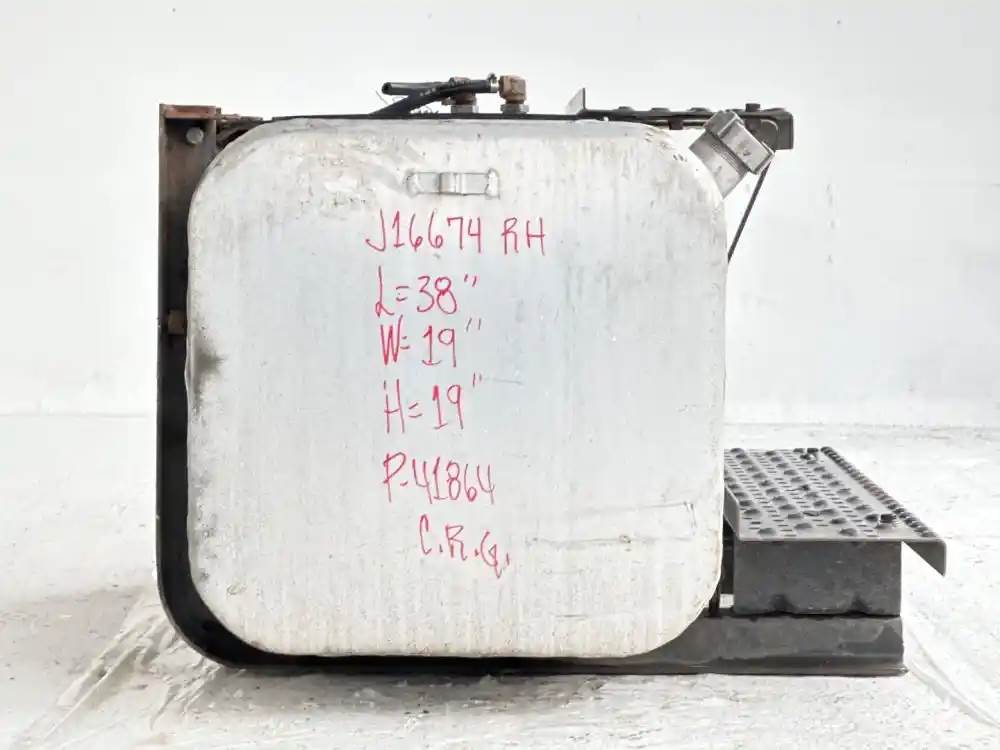 J16674 RH
L=38"
W=19"
H=19"
P-41864
C.R.G.